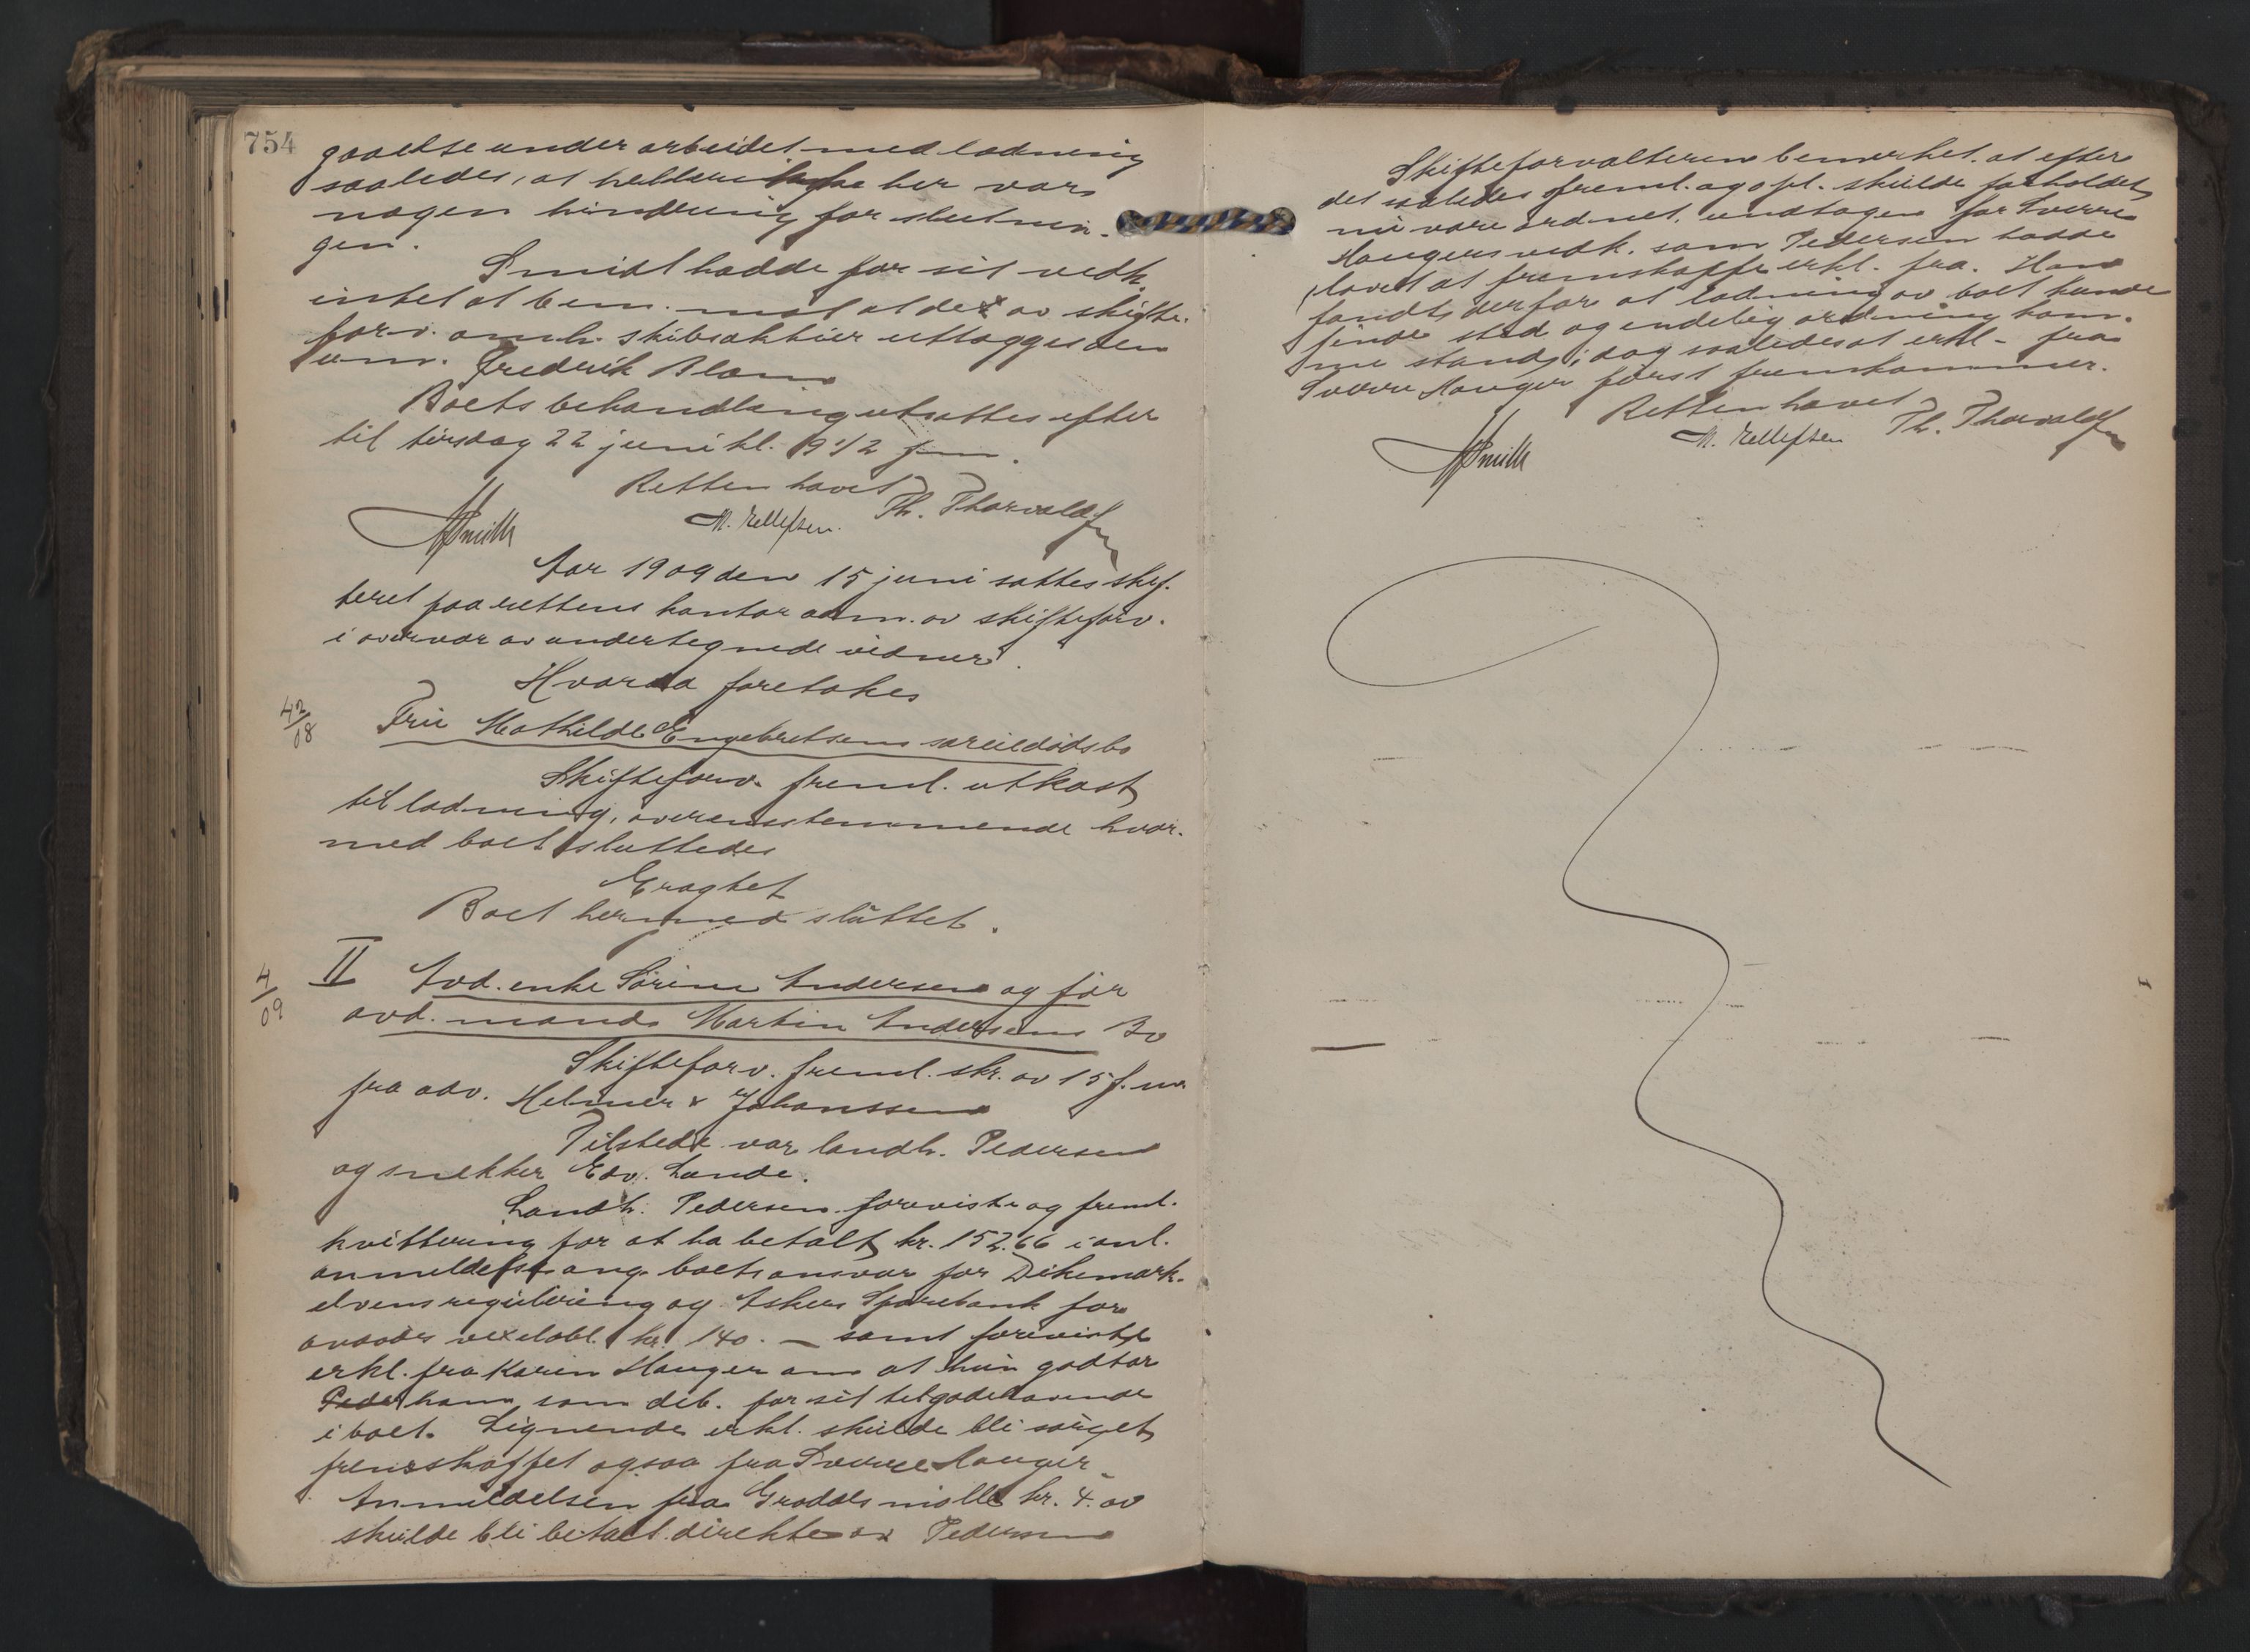 754
gaaelse under arbeidet med lodning
saaledes, at hellere ikke her var
nogen hindring for slutnin-
gen.
Smidt hadde for sit vedk.
intet at bem. mot at de av skifte-
forv. omh. skibsaktier utlægges den
um. Fredrik Blom
Boets behandling utsattes efter
til tirsdag 22 juni kl. 9 1/2 fm.
Retten hævet
Smith M. Ellefsen. Th. Thorvaldsen
Aar 1909 den 15 juni sattes skif-
teret paa rettens kontor adm. av skifteforv.
i overvær av undertegnede vidner.
Hvorda foretokes
42/08 Fru Mathilde Engebretsens særeiedødsbo
Skifteforv. freml. utkast
til lodning, overensstemmende hvor-
med boet sluttedes
Eragtet
Boet hermed sluttet.
4/09 II Avd. enke Sørine Andersens og før
avd. mands Martin Andersens Bo
Skifteforv. freml. skr. av 15 f. m.
fra adv. Helmer & Johanssen
Tilstede var landh. Pedersen
og snekker Edv. Lande.
Landh. Pedersen foreviste og freml.
kvittering for at ha betalt kr. 152.66 i anl.
anmeldelse ang. boets ansvar for Dikemark-
elvens regulering og Askers Sparebank for
avdødes vexelobl. kr. 140. — samt foreviste
erkl. fra Karin Hauger om at hun godtar
Peder ham som deb. for sit tilgodehavende
i boet. Lignende erkl. skulde bli sørget
fremskaffet ogsaa fra Sverre Hauger.
Anmeldelsen fra Grødals mølle kr. 4.
skulde bli betalt direkte av Pedersen
Skifteforvalteren bemerket at efter
det saaledes freml. og opl. skulde forholdet
nu være ordnet, undtagen for Sverre
Haugers vedk. som Pedersen hadde
lovet at fremskaffe erkl. fra. Han
fandt derfor at lodning av boet kunde
finde sted og endelig ordning kom-
me istand i dag saaledes at erkl. fra
Sverre Hauger først fremkommer.
Retten hævet
Smith M. Ellefsen Th. Thorvaldsen